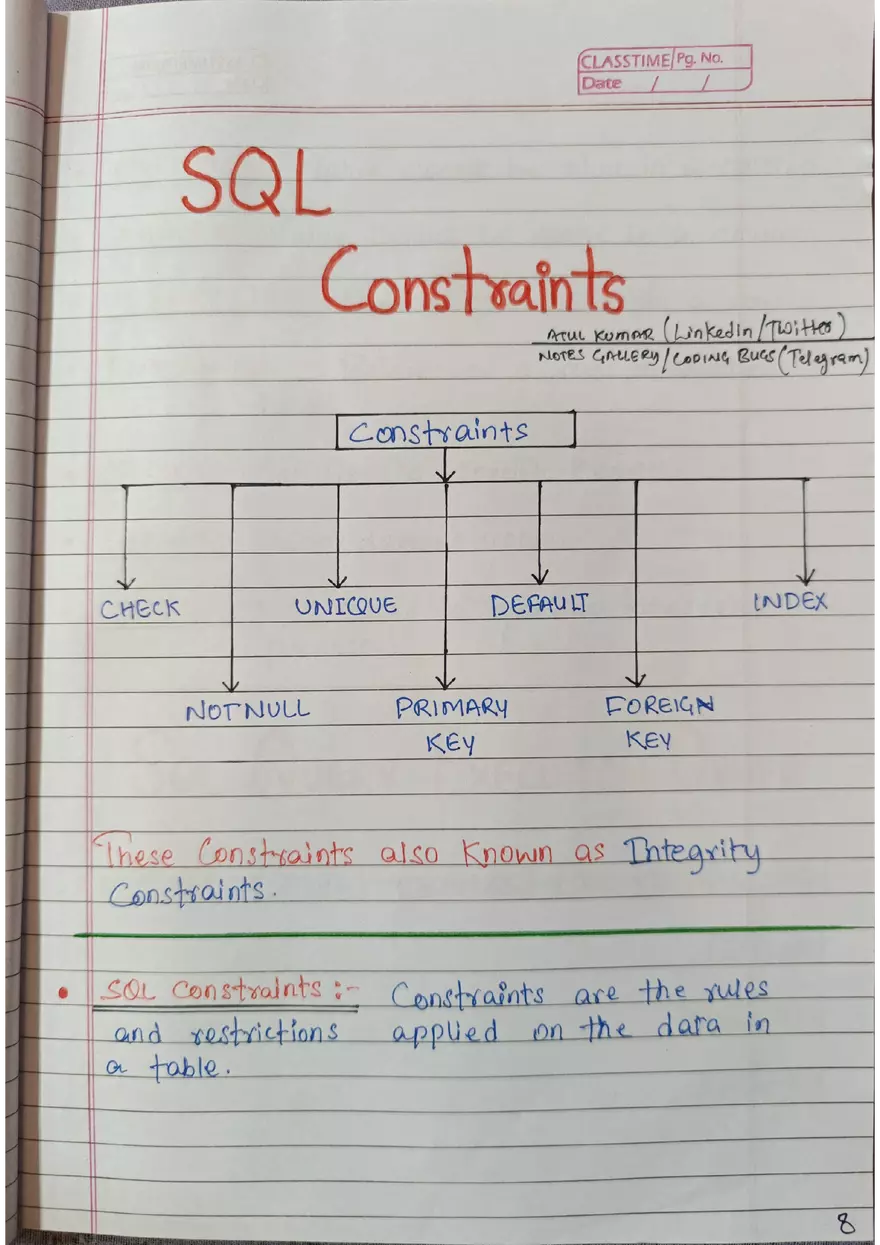 CLASSTIME Pg. No.
Date / /
SQL
Constraints
ATUL KUMAR (LinkedIn/Twitter)
NOTES GALLERY/CODING BUGS (Telegram)
Constraints
CHECK UNIQUE DEFAULT INDEX
NOTNULL PRIMARY FOREIGN
KEY KEY
These Constraints also Known as Integrity
Constraints.
• SQL Constraints :- Constraints are the rules
and restrictions applied on the data in
a table.
8